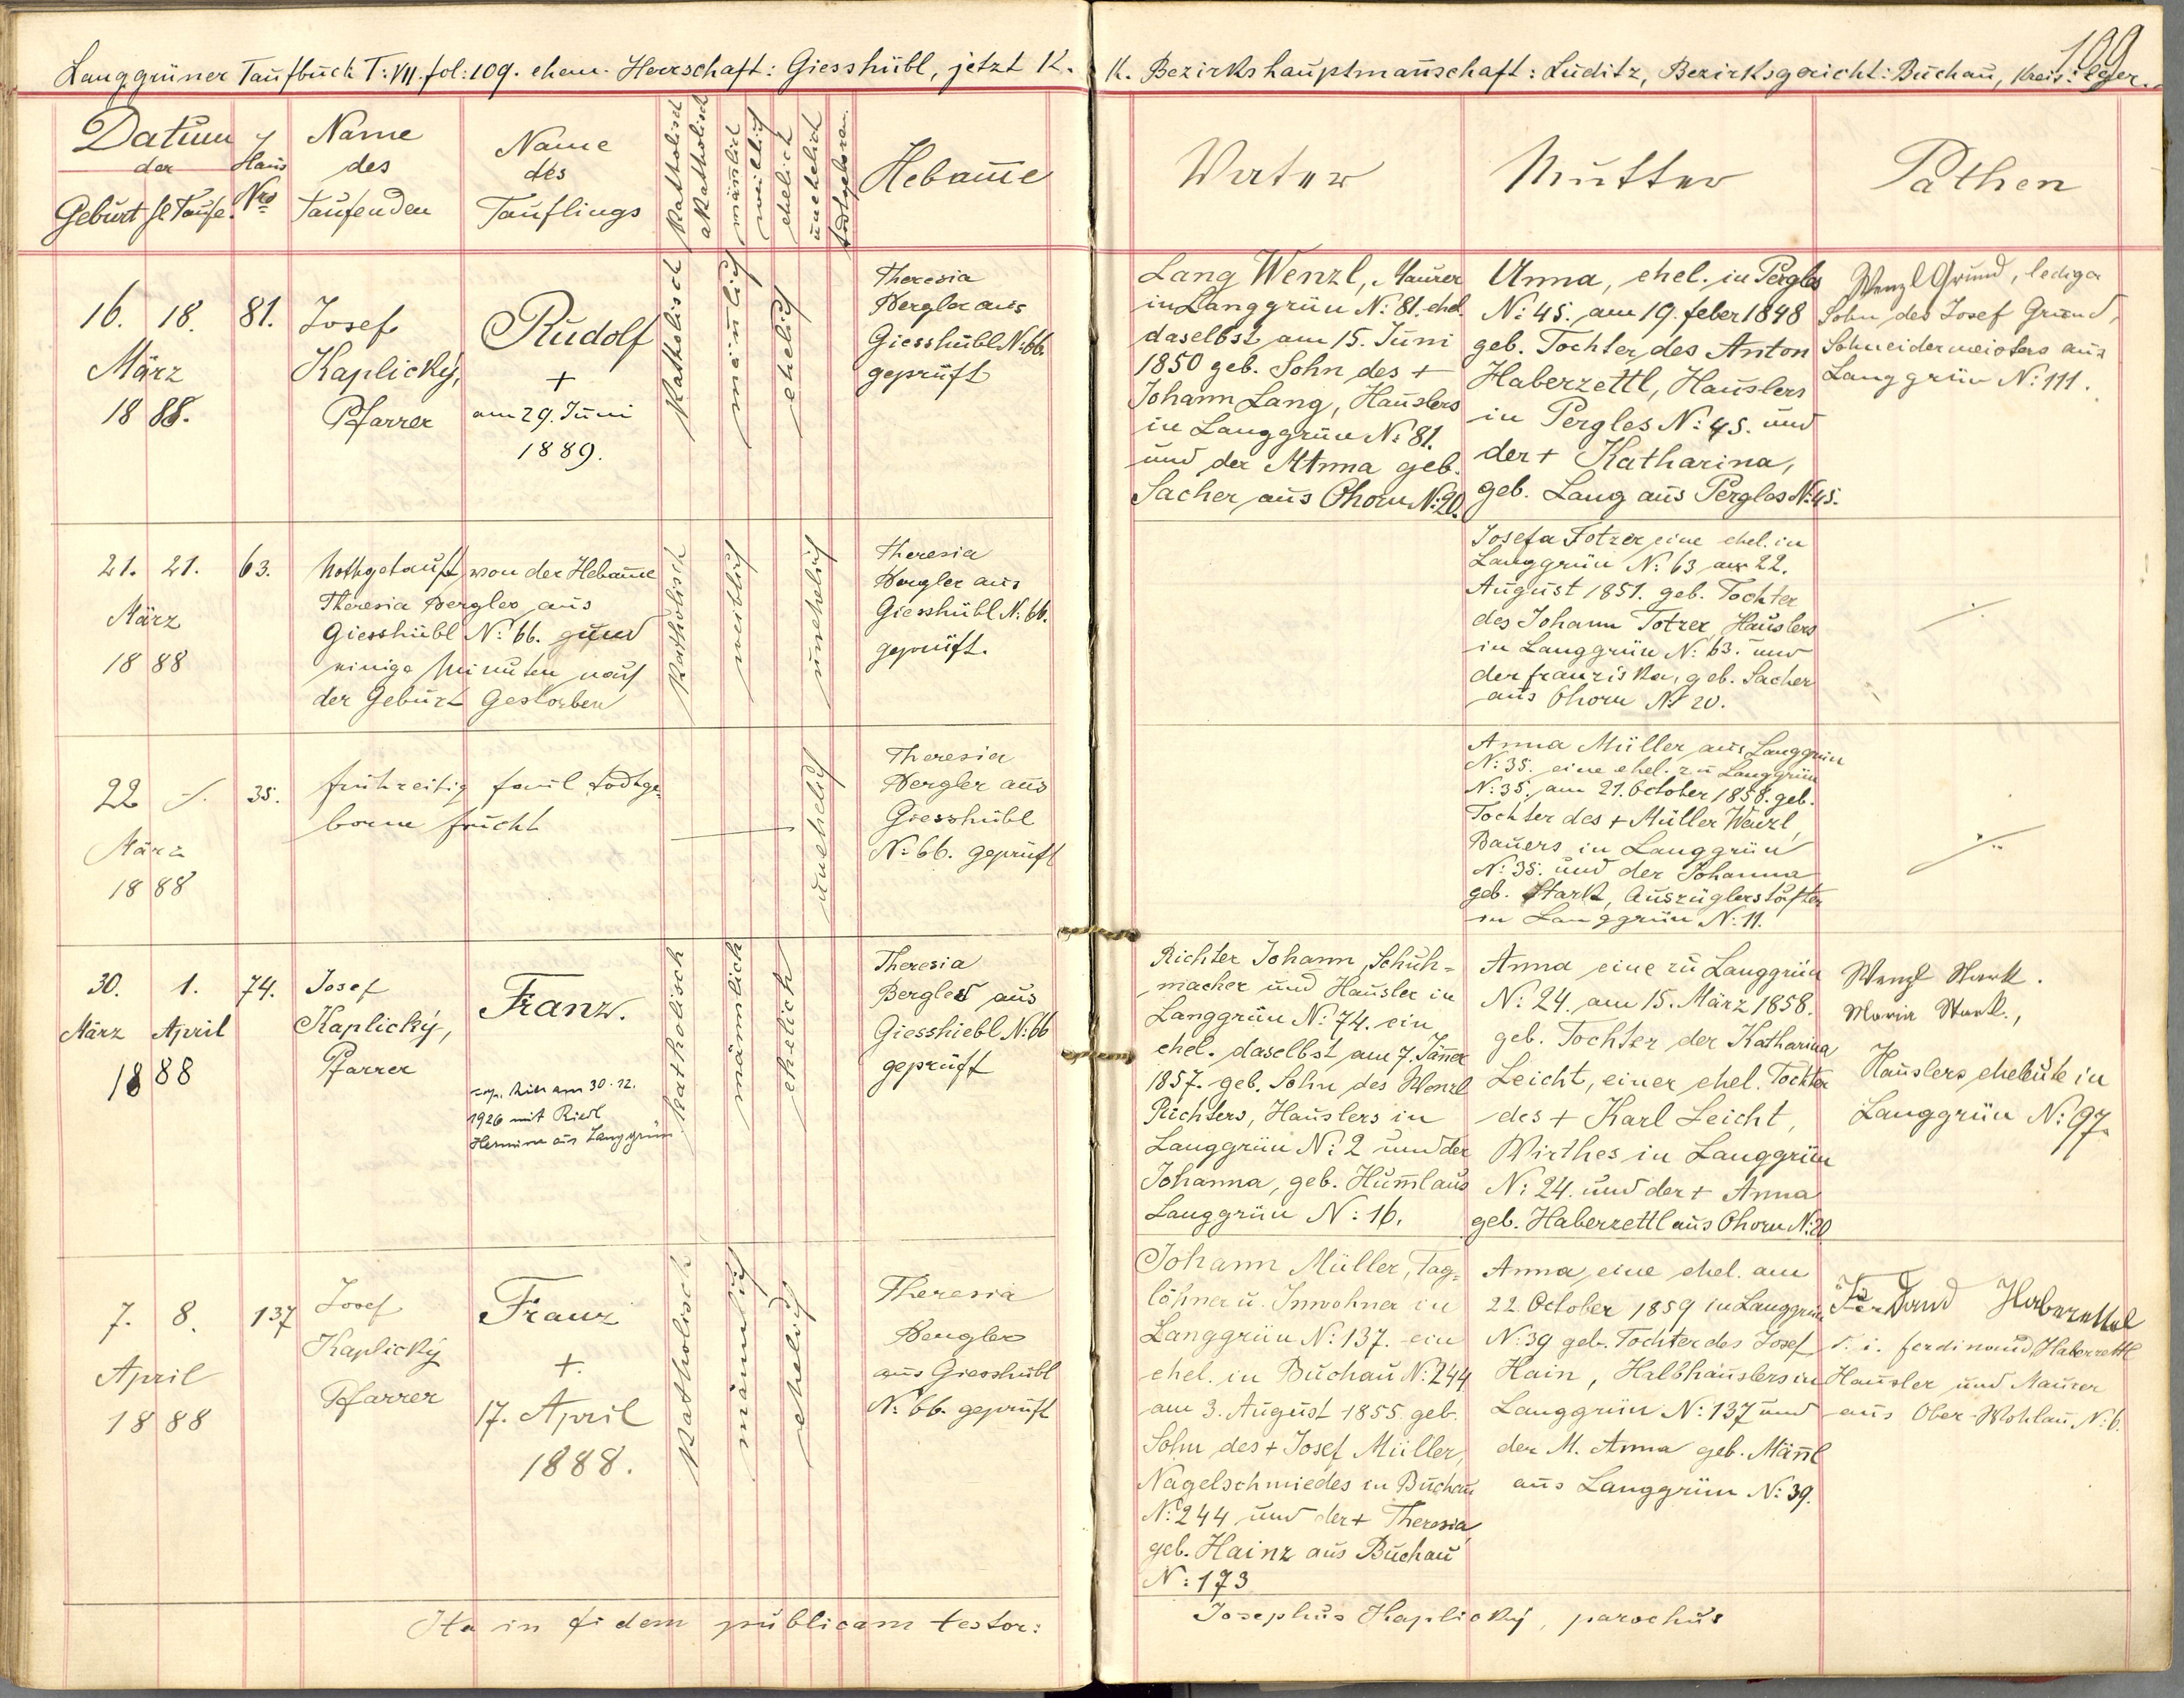 109
Langgrüner Taufbuch T: VII. fol: 109. ehem. Herrschaft: Giesshübl, jetzt K. K. Bezirkshauptmannschaft: Luditz, Bezirksgericht: Buchau, Kreis: Eger.
Datum
der
Geburt hl. Taufe.
Haus
Nro
Name
des
Taufenden
Name
des
Täuflings
Katholisch
akatholisch
mänlich
weiblich
ehelich
unehelich
todtgeboren.
Hebam̄e
Vater
Mutter
Pathen
16. 18. 81.
März
1888.
Josef
Kaplický,
Pfarrer
Rudolf
+
am 29. Juni
1889.
Katholisch
män̄lich
ehelich
Theresia
Bergler aus
Giesshübl N: 66.
geprüft
Lang Wenzl, Maurer
in Langgrün N: 81. ehel.
daselbst am 15. Juni
1850 geb. Sohn des +
Johann Lang, Häuslers
in Langgrün N: 81.
und der M Anna geb.
Sacher aus Ohorn N: 20.
Anna, ehel. in Pergles
N: 45. am 19. feber 1848
geb. Tochter des Anton
Haberzettl, Häuslers
in Pergles N: 45. und
der + Katharina,
geb. Lang aus Pergles N: 45.
Wenzl Grund, lediger
Sohn des Josef Grund,
Schneidermeisters aus
Langgrün N: 111.
21. 21. 63.
März
1888
Nothgetauft von der Hebam̄e
Theresia Bergler aus
Giesshübl N: 66.
einige Minuten nach
der Geburt Gestorben
Katholisch
weiblich
unehelich
Theresia
Bergler aus
Giesshübl N: 66.
geprüft.
Josefa Totzer eine ehel. in
Langgrün N: 63 am 22.
August 1851. geb. Tochter
des Johann Totzer, Häuslers
in Langgrün N: 63. und
der franziska, geb. Sacher
aus Ohorn N: 20.
22 35.
März
1888
frühzeitig faul todtge-
borne frucht
unehelich
Theresia
Bergler aus
Giesshübl
N: 66. geprüft
Anna Müller aus Langgrün
N: 35. eine ehel. zu Langgrün
N: 35. am 21. October 1858. geb.
Tochter des + Müller Wenzl,
Bauers in Langgrün
N: 35. und der Johanna
geb. Stark, Auszüglerstochter
in Langgrün N: 11.
30. 1. 74.
März April
1888
Josef
Kaplický,
Pfarrer
Franz.
cop. am 30.12.
1926 mit Riedl
Hermine aus Langgrün
Katholisch
männlich
ehelich
Theresia
Bergler aus
Giesshiebl N: 66
geprüft
Richter Johann, Schuh-
macher und Häusler in
Langgrün N: 74. ein
ehel. daselbst am 7. Jän̄er
1857. geb. Sohn des Wenzl
Richters, Häuslers in
Langgrün N: 2 und der
Johanna, geb. Hum̄l aus
Langgrün N: 16.
Anna eine zu Langgrün
N: 24. am 15. März 1858.
geb. Tochter der Katharina
Leicht, einer ehel. Tochter
des + Karl Leicht,
Wirthes in Langgrün
N: 24. und der + Anna
geb. Haberzettl aus Ohorn N: 20
Wenzl Stark.
Maria Stark.,
Häuslers eheleute in
Langgrün N: 97.
7. 8. 137
April
1888
Josef
Kaplický
Pfarrer
Franz
+.
17. April
1888.
Katholisch
män̄lich
ehelich
Theresia
Bergler
aus Giesshübl
N: 66. geprüft
Johann Müller, Tag-
löhner u. Inwohner in
Langgrün N: 137. ein
ehel. in Buchau N: 244
am 3. August 1855. geb.
Sohn des + Josef Müller,
Nagelschmiedes in Buchau
N: 244 und der + Theresia,
geb. Hainz aus Buchau
N: 173
Anna, eine ehel. am
22. October 1859 in Langgrün
N: 39 geb. Tochter des Josef
Hain, Halbhäuslers in
Langgrün N: 137 und
der M. Anna geb. Män̄l
aus Langgrün N: 39.
Haberzettel
d. i. ferdinand Haberzettl
Häusler und Maurer
aus Ober-Wohlau N: 6.
Ita in fidem publicam testor: Josephus Kaplický, parochus